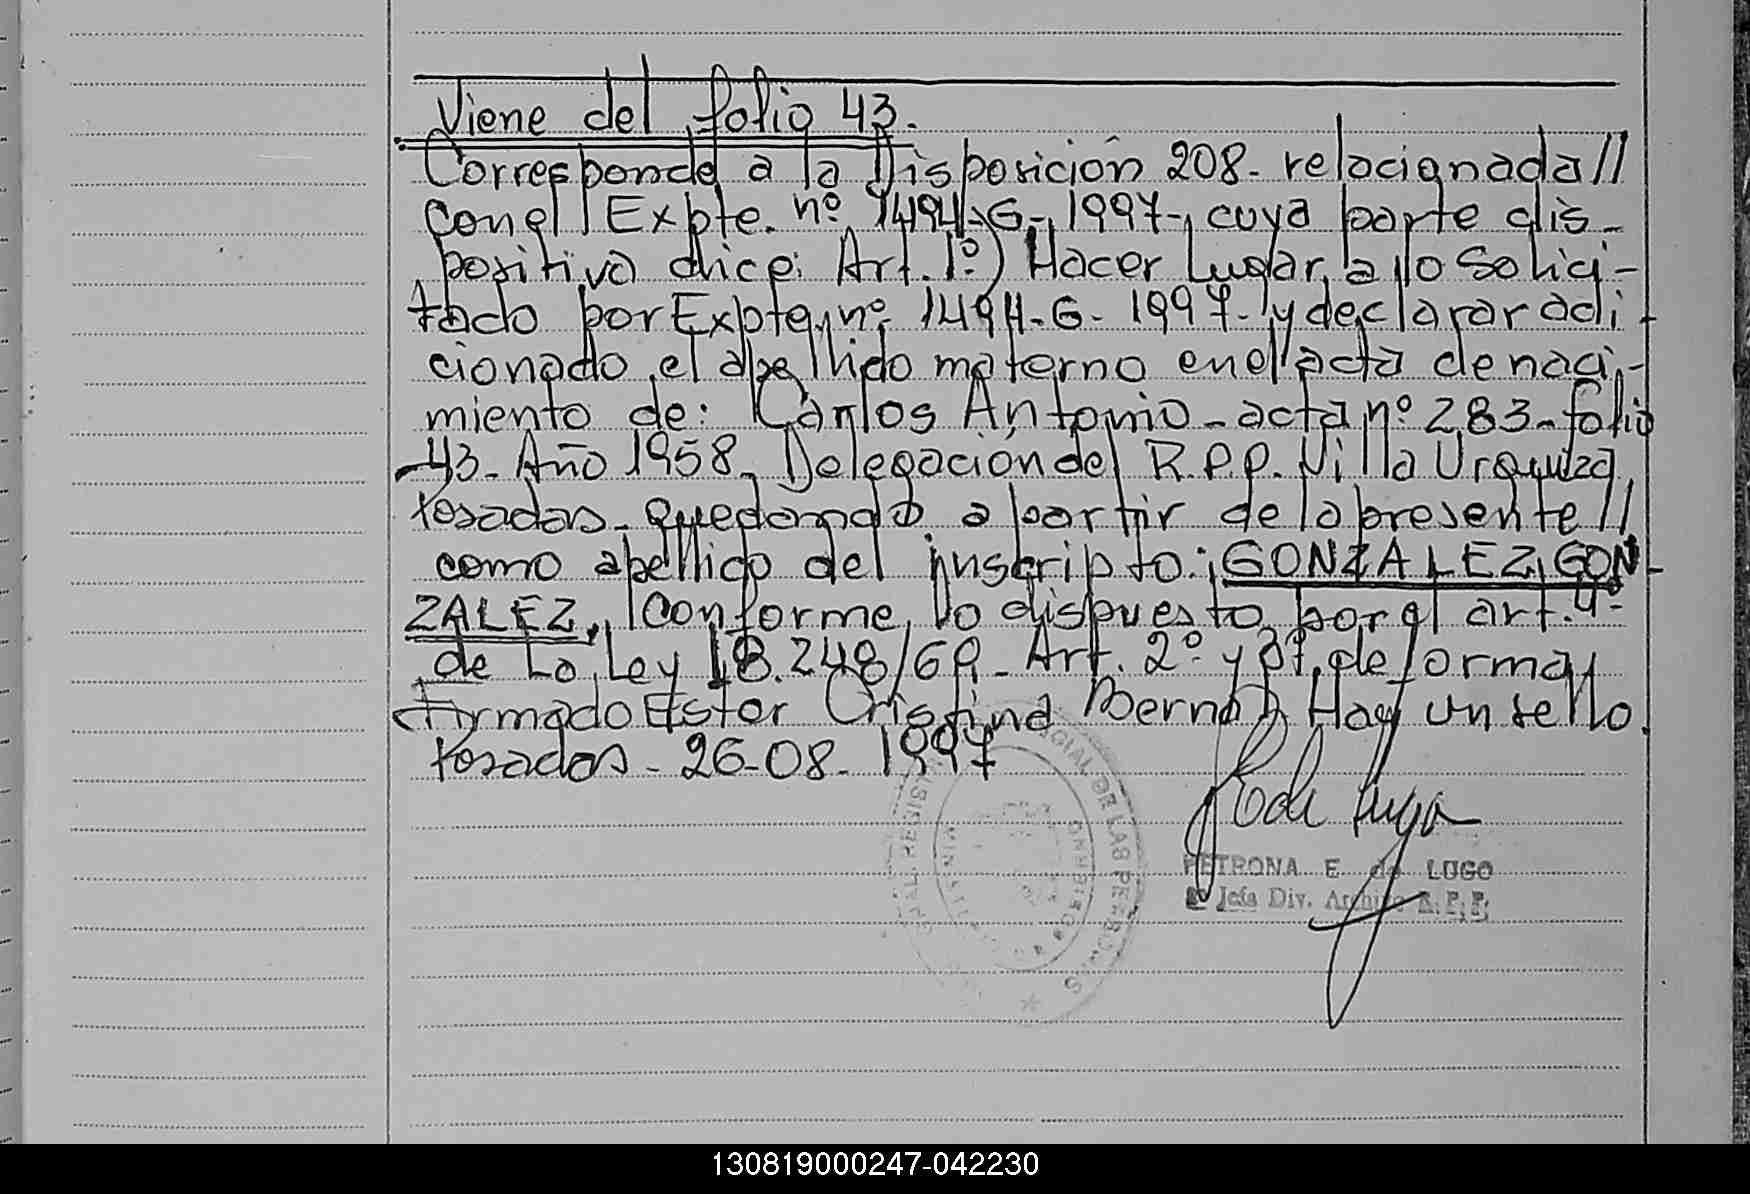 Viene del folio 43.
Corresponde a la Disposición 208- relacionada//
con el Expte. nº 1494-G-, 1997-, cuya parte dis-
positiva dice: Art. 1º) Hacer Lugar a lo Solici-
tado por Expte, nº 1494-G- 1997- y declarar adi-
cionado el apellido materno en el acta de naci-
miento de: Carlos Antonio - acta nº 283- folio
43- Año 1958- Delegación del R.P.P. Villa Urquiza,
Posadas- Quedando a partir de la presente//
como apellido del inscripto: GONZALEZ GON-
ZALEZ, Conforme lo dispuesto por el art. 4º-
de La Ley 18.248/69- Art. 2º y 3º, de forma,
Firmado Ester Cristina Bernal, Hay un sello.
Posadas- 26-08- 1997
PETRONA E. de LUGO
Jefa Div. Archivo R.P.P.
130819000247-042230